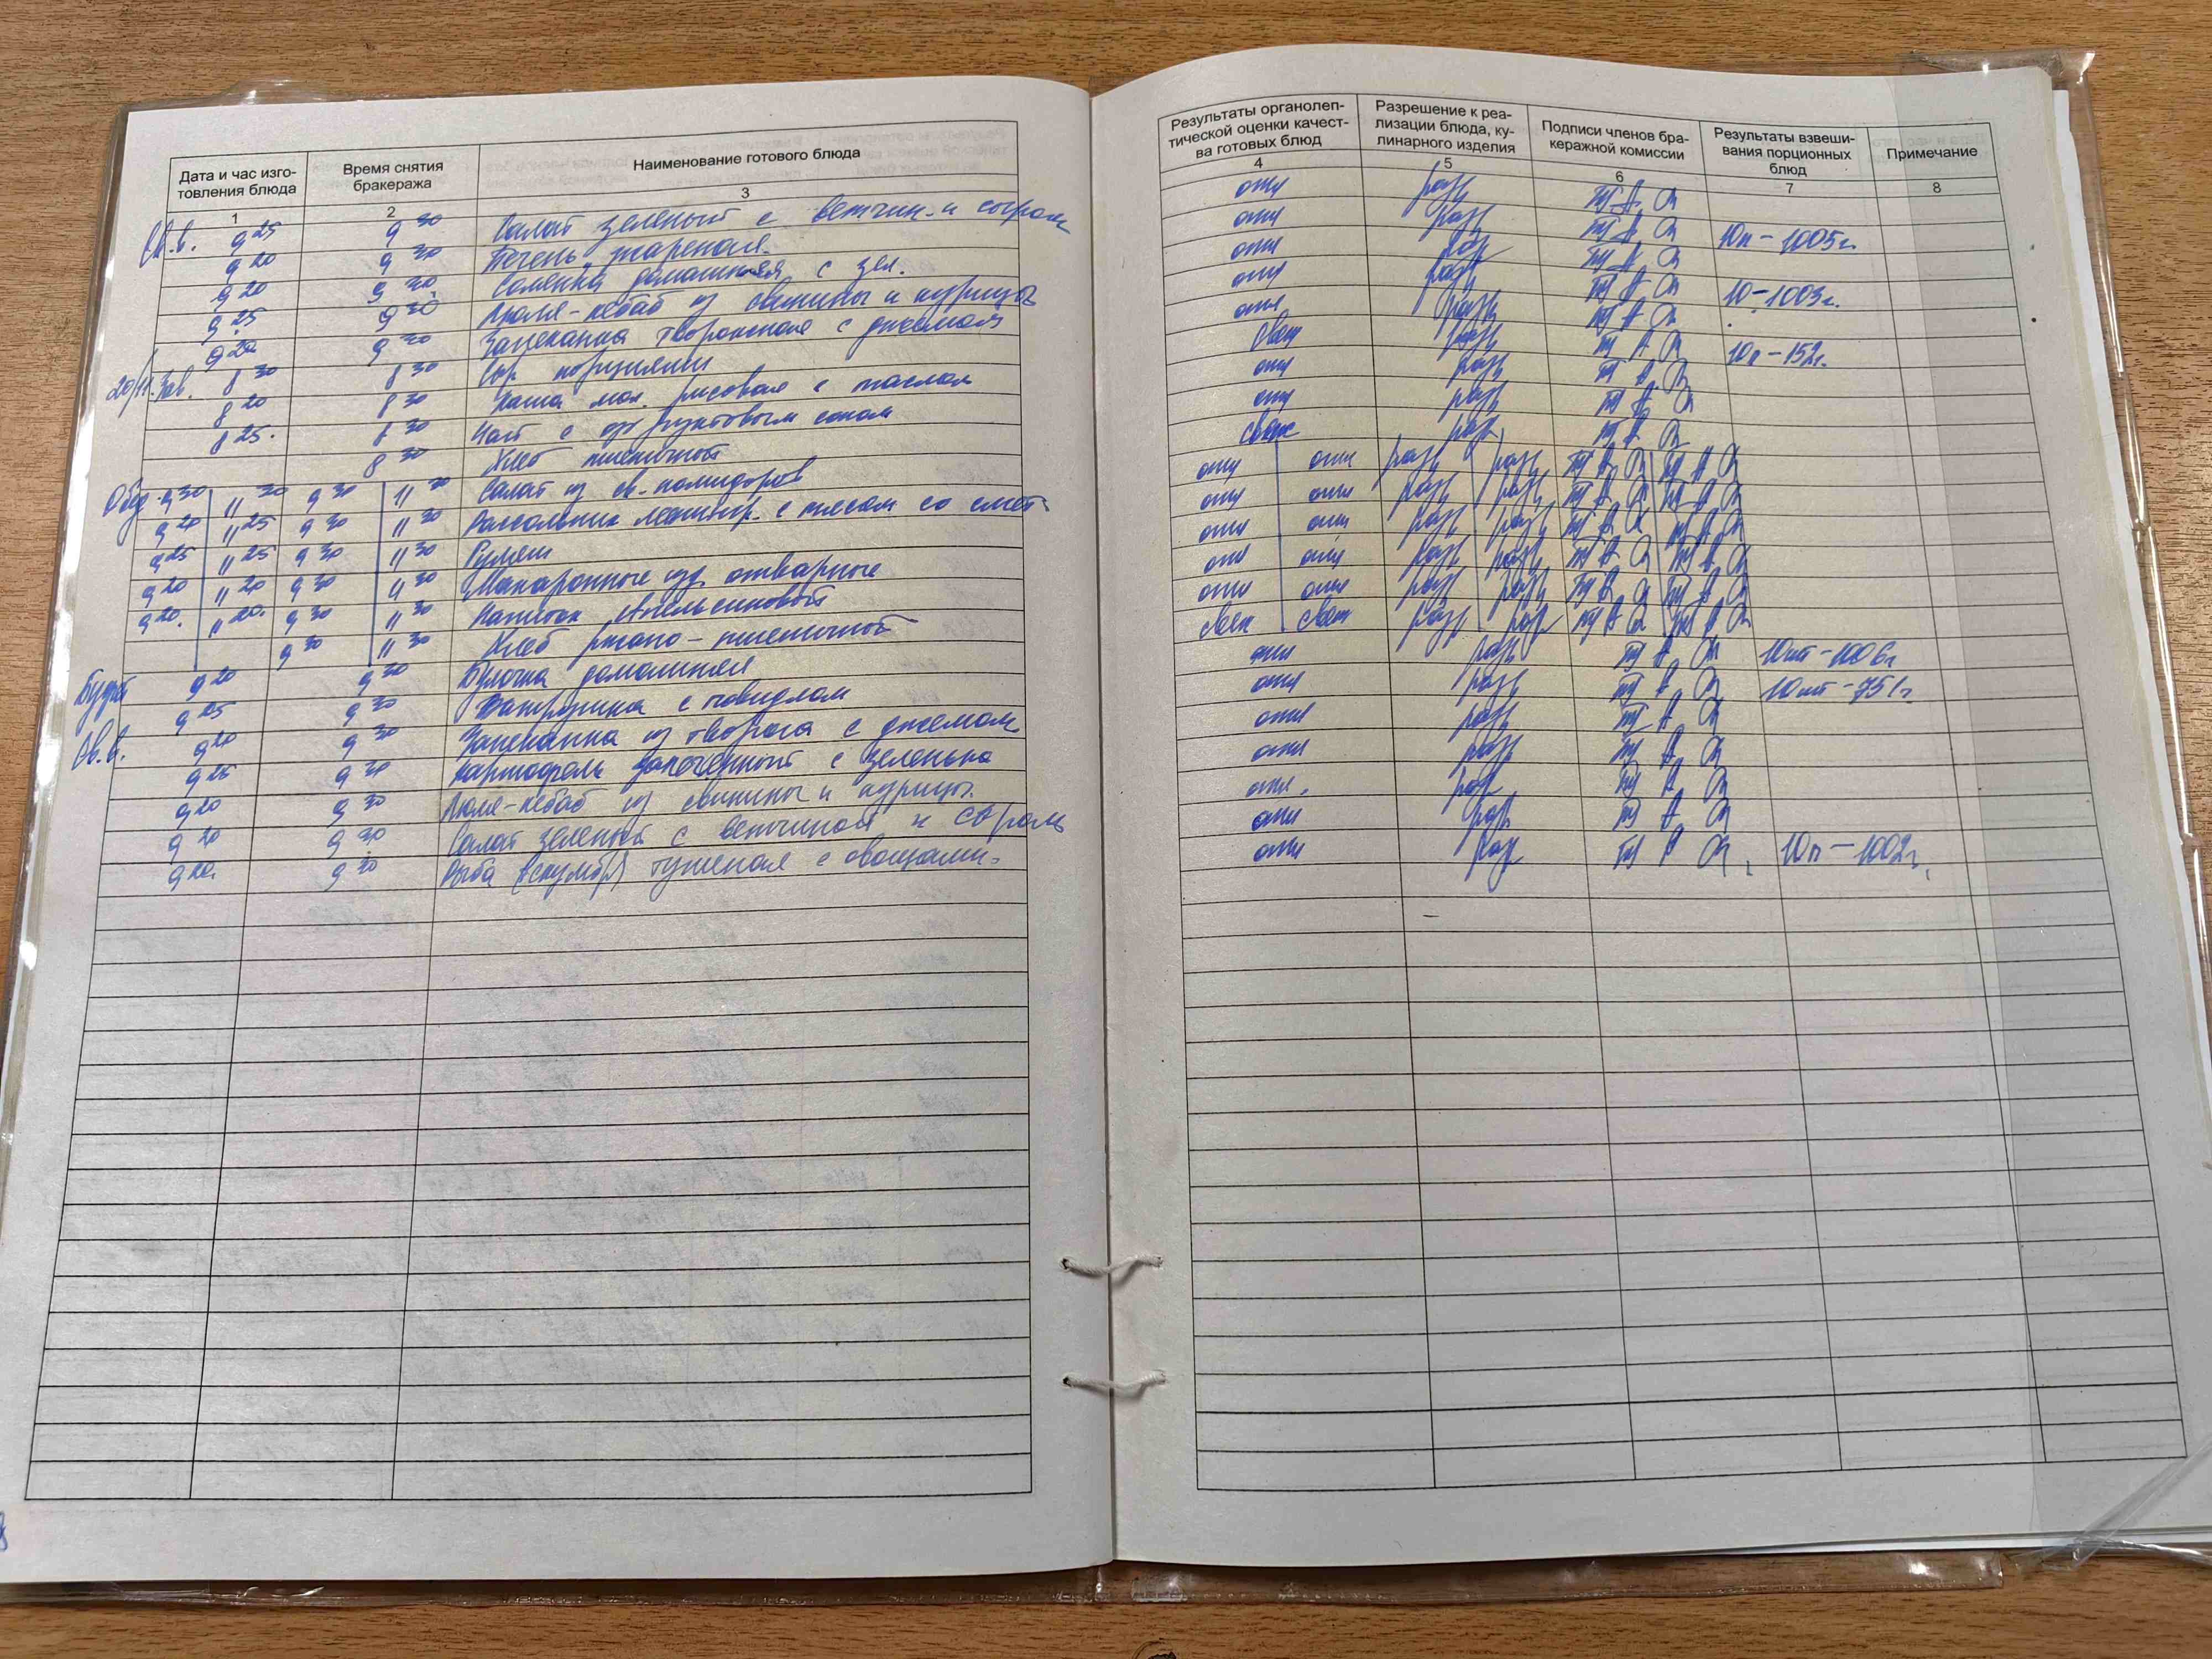 Дата и час изго-
товления блюда
Время снятия
бракеража
Наименование готового блюда
1 2 3
Св.в. 9 25 9 30 Салат зеленый с ветчин. и сыром
9 20 9 30 Печень жареная
9 20 9 30 домашняя с зел.
9 25 9 30 Люля-кебаб из свинины и курицы
9 20 9 30 Запеканка творожная с джемом
20/11. Зав. 8 30 8 30 Сыр порциями
8 20 8 30 Каша мол. рисовая с маслом
8 25. 8 30 Чай с фруктовым соком
8 30 Хлеб пшеничный
Обед 9 30 11 30 9 30 11 30 Салат из св. помидоров
9 20 11 25 9 30 11 30 Рассольник ленингр. с мясом со смет.
9 25 11 25 9 30 11 30 Гуляш
9 20 11 20 9 30 11 30 Макаронные изд. отварные
9 20. 11 20. 9 30 11 30 Напиток апельсиновый
9 30 11 30 Хлеб ржано-пшеничный
Буфет 9 20 9 30 Булочка домашняя
9 25 9 30 Ватрушка с повидлом
Св.в. 9 20 9 30 Запеканка из творога с джемом
9 25 9 30 Картофель запеченный с зеленью
9 20 9 30 Люля-кебаб из свинины и курицы.
9 20 9 30 Салат зеленый с ветчиной и сыром
9 20. 9 30 Рыба (скумбр) тушеная с овощами.
Результаты органолеп-
тической оценки качест-
ва готовых блюд
Разрешение к реа-
лизации блюда, ку-
линарного изделия
Подписи членов бра-
керажной комиссии
Результаты взвеши-
вания порционных
блюд
Примечание
4 5 6 7 8
отл разр
отл разр 10п-1005г.
отл разр
отл разр 10-1003г.
отл разр
свеж разр 10п-152г.
отл разр
отл разр
свеж разр
отл отл разр разр
отл отл разр разр
отл отл разр разр
отл отл разр разр
отл отл разр разр
свеж свеж разр разр
отл разр 10шт-1006г
отл разр 10шт-751г
отл разр
отл разр
отл. разр
отл разр
отл разр 10п-1002г.